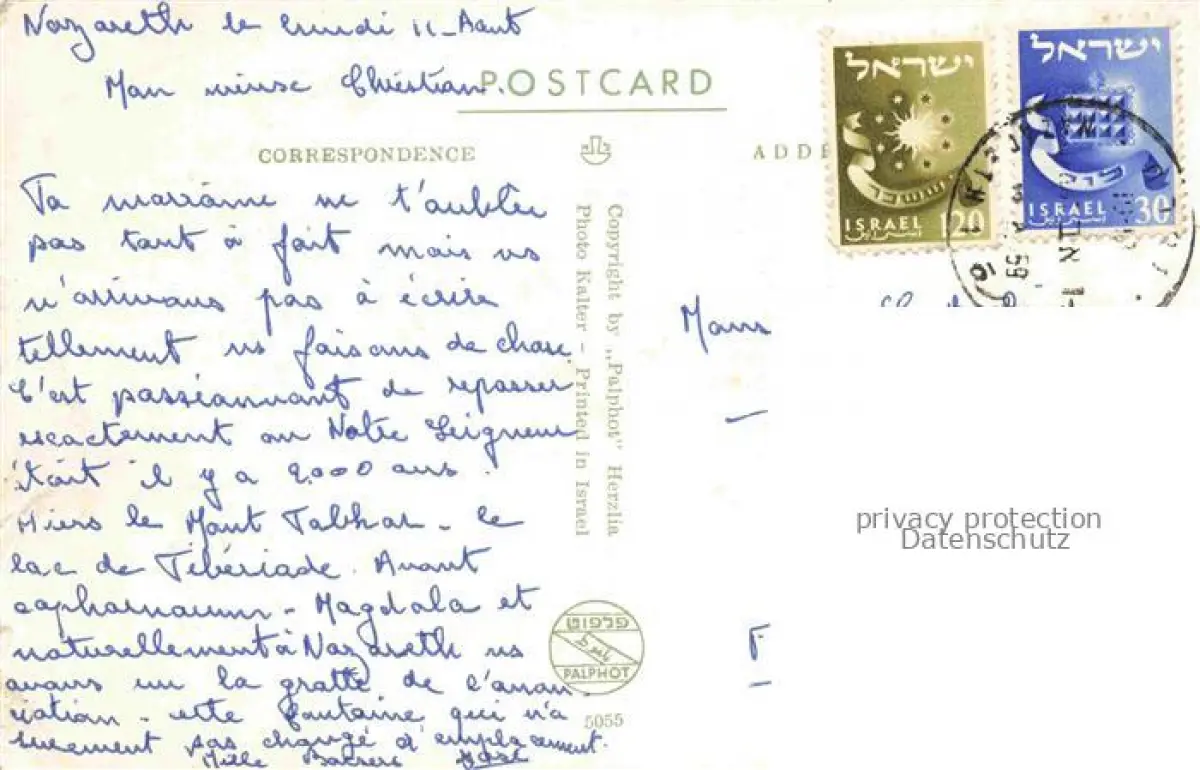 Nazareth le lundi 11 - Aout
Mon vieux Christian.
POSTCARD
CORRESPONDENCE
ADDRE
Ta marraine ne t'oublie
pas tout à fait mais ns
n'arrivons pas à écrire
tellement ns faisons de chose.
C'est passionnant de repasser
exactement ou Notre Seigneur
était il y a 2000 ans.
Hiers le Mont Tabhor - le
lac de Tibériade. Avant
capharnaum - Magdala et
naturellement à Nazareth ns
avons vu la grotte de l'anon
ciation - cette fontaine qui n'a
surement pas changé d'emplacement.
Mille Baisers
Copyright by „Palphot" Herzlia
Photo Kalter - Printed in Israel
פלפוט
PALPHOT
5055
ישראל
יששכר
ISRAEL 120
ישראל
לוי
ISRAEL 30
Mons
F
privacy protection
Datenschutz